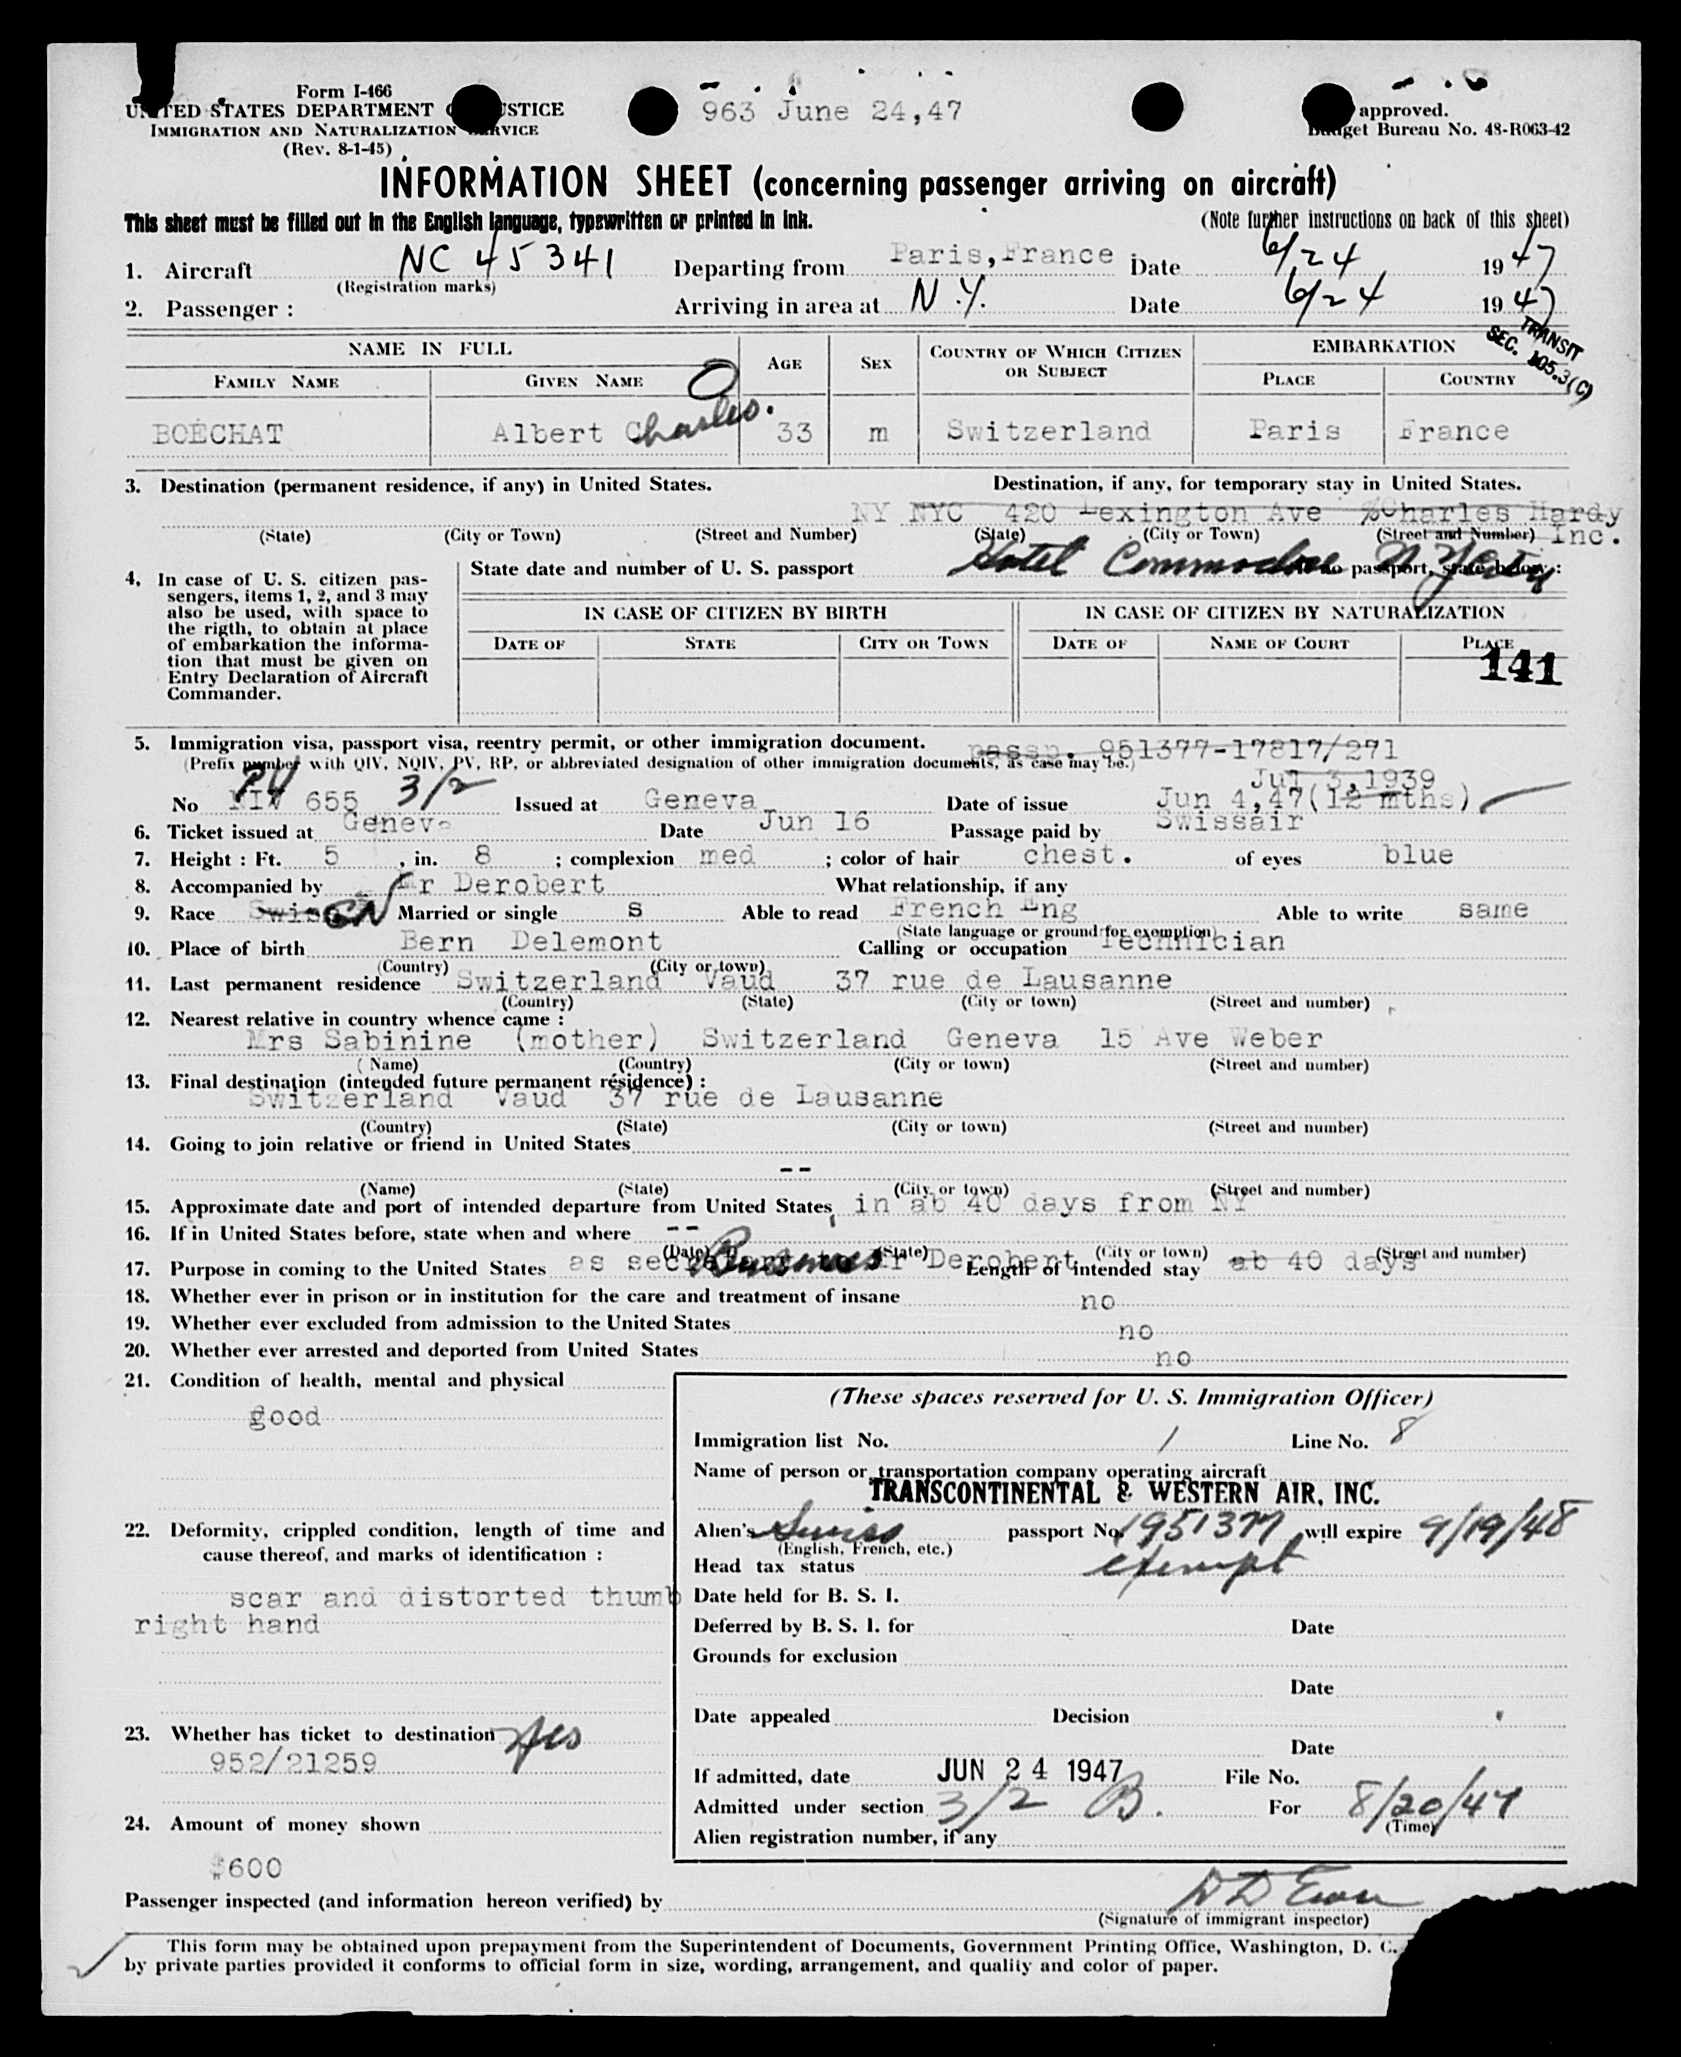 Form I-466
UNITED STATES DEPARTMENT OF JUSTICE
IMMIGRATION AND NATURALIZATION SERVICE
(Rev. 8-1-45)
963 June 24,47
approved.
Budget Bureau No. 48-R063-42
INFORMATION SHEET (concerning passenger arriving on aircraft)
This sheet must be filled out in the English language, typewritten or printed in ink. (Note further instructions on back of this sheet)
1. Aircraft NC 45341 Departing from Paris, France Date 6/24 1947
(Registration marks)
2. Passenger : Arriving in area at N.Y. Date 6/24 1947
TRANSIT
SEC. 105.3(C)
NAME IN FULL AGE SEX COUNTRY OF WHICH CITIZEN OR SUBJECT EMBARKATION
FAMILY NAME GIVEN NAME PLACE COUNTRY
BOÉCHAT Albert Charles. 33 m Switzerland Paris France
3. Destination (permanent residence, if any) in United States. Destination, if any, for temporary stay in United States.
NY NYC 420 Lexington Ave %Charles Hardy Inc.
(State) (City or Town) (Street and Number) (State) (City or Town) (Street and Number)
Hotel Commodore N.Y.
4. In case of U. S. citizen passengers, items 1, 2, and 3 may also be used, with space to the rigth, to obtain at place of embarkation the information that must be given on Entry Declaration of Aircraft Commander.
State date and number of U. S. passport no passport, state below :
IN CASE OF CITIZEN BY BIRTH IN CASE OF CITIZEN BY NATURALIZATION
DATE OF STATE CITY OR TOWN DATE OF NAME OF COURT PLACE
141
5. Immigration visa, passport visa, reentry permit, or other immigration document. passp. 951377-17817/271
(Prefix number with QIV, NQIV, PV, RP, or abbreviated designation of other immigration documents, as case may be.)
Jul 3,1939
No PV NIV 655 3/2 Issued at Geneva Date of issue Jun 4,47(12 mths)
6. Ticket issued at Geneva Date Jun 16 Passage paid by Swissair
7. Height : Ft. 5 , in. 8 ; complexion med ; color of hair chest. of eyes blue
8. Accompanied by Mr Derobert What relationship, if any
9. Race Swiss Married or single s Able to read French Eng Able to write same
(State language or ground for exemption)
10. Place of birth Bern Delemont Calling or occupation Technician
(Country) (City or town)
11. Last permanent residence Switzerland Vaud 37 rue de Lausanne
(Country) (State) (City or town) (Street and number)
12. Nearest relative in country whence came :
Mrs Sabinine (mother) Switzerland Geneva 15 Ave Weber
(Name) (Country) (City or town) (Street and number)
13. Final destination (intended future permanent résidence) :
Switzerland Vaud 37 rue de Lausanne
(Country) (State) (City or town) (Street and number)
14. Going to join relative or friend in United States
--
(Name) (State) (City or town) (Street and number)
15. Approximate date and port of intended departure from United States, in ab 40 days from NY
16. If in United States before, state when and where --
(Date) (State) (City or town) (Street and number)
17. Purpose in coming to the United States as secretary to Mr Derobert Business Length of intended stay ab 40 days
18. Whether ever in prison or in institution for the care and treatment of insane no
19. Whether ever excluded from admission to the United States no
20. Whether ever arrested and deported from United States no
21. Condition of health, mental and physical
good
22. Deformity, crippled condition, length of time and cause thereof, and marks of identification :
scar and distorted thumb
right hand
23. Whether has ticket to destination Yes
952/21259
24. Amount of money shown
$600
(These spaces reserved for U. S. Immigration Officer)
Immigration list No. 1 Line No. 8
Name of person or transportation company operating aircraft
TRANSCONTINENTAL & WESTERN AIR, INC.
Alien's Swiss passport No. 1951377 will expire 9/19/48
(English, French, etc.)
Head tax status exempt
Date held for B. S. I.
Deferred by B. S. I. for Date
Grounds for exclusion
Date
Date appealed Decision
Date
If admitted, date JUN 24 1947 File No.
Admitted under section 3/2 B. For 8/20/47
(Time)
Alien registration number, if any
Passenger inspected (and information hereon verified) by
(Signature of immigrant inspector)
This form may be obtained upon prepayment from the Superintendent of Documents, Government Printing Office, Washington, D. C.
by private parties provided it conforms to official form in size, wording, arrangement, and quality and color of paper.